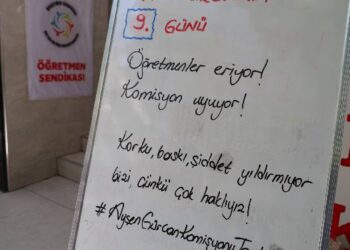 9. GÜNÜ
Öğretmenler eriyor!
Komisyon uyuyor!
Korku, baskı, şiddet yıldırmıyor
bizi çünkü çok haklıyız!
#AyşenGürcanKomisyonuTo
ÖĞRETMEN
SENDİKASI